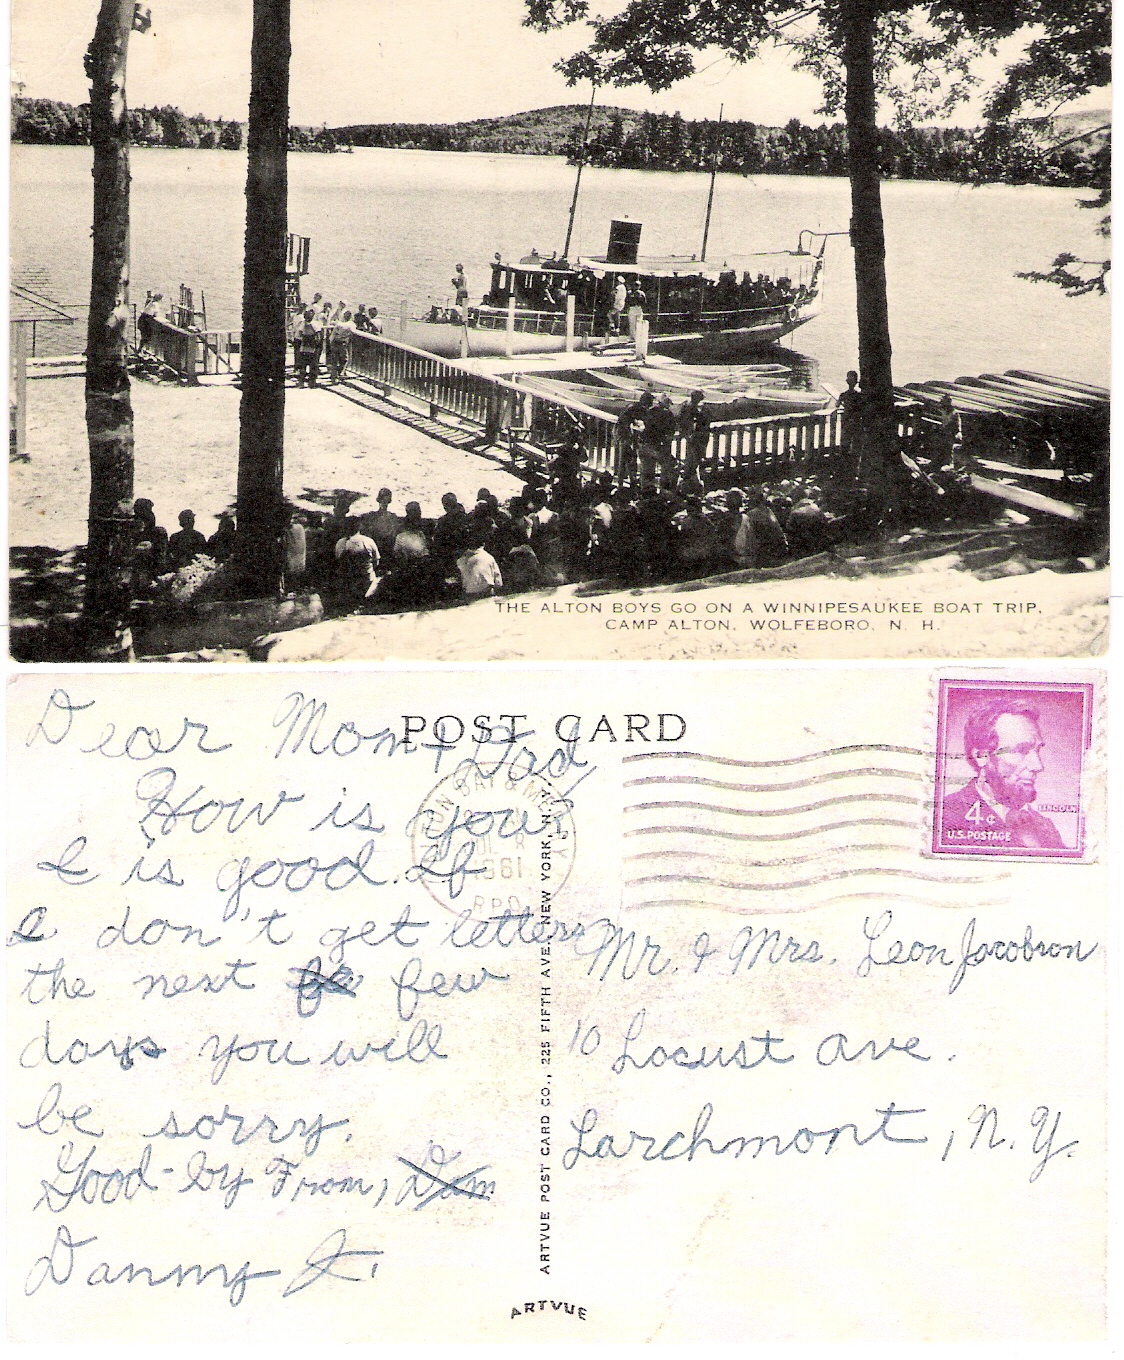 THE ALTON BOYS GO ON A WINNIPESAUKEE BOAT TRIP,
CAMP ALTON, WOLFEBORO, N. H.
POST CARD
Dear Mom + Dad,
How is you?
I is good. If
I don't get letters
the next few
days you will
be sorry.
Good-by From, Dam
Danny J.
1961
R.P.O.
LINCOLN
4¢
U.S. POSTAGE
Mr. & Mrs. Leon Jacobson
10 Locust ave.
Larchmont, N.Y.
ARTVUE POST CARD CO., 225 FIFTH AVE., NEW YORK, N.Y.
ARTVUE